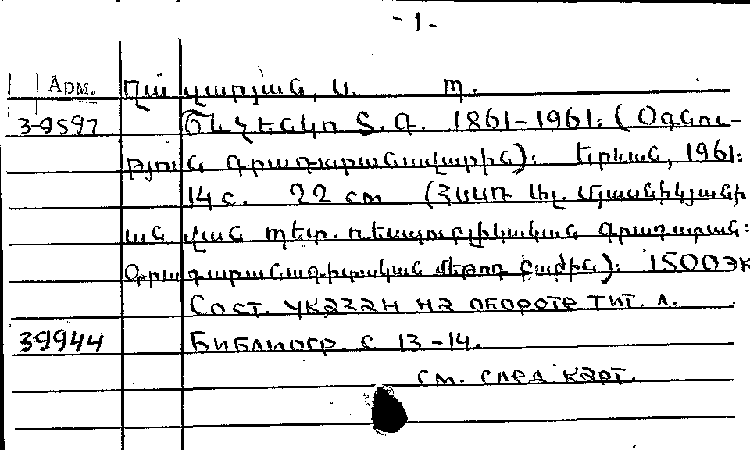 - 1 -
Арм. Ղա վարյան, Ա. Պ.
Շևչենկո Տ. Գ. 1861-1961: (Օգնու-
թյուն գրադարանավարին): Երևան, 1961:
14 с. 22 см (ՀՍՍՌ Ալ. Մյասնիկյանի
ան վան պետ. ռեսպուբլիկական գրադարան:
Գրադարանագիտական մեթոդ բաժին): 1500 эк
Сост. указан на обороте тит. л.
39944 Библиогр. с 13-14.
см. след карт.